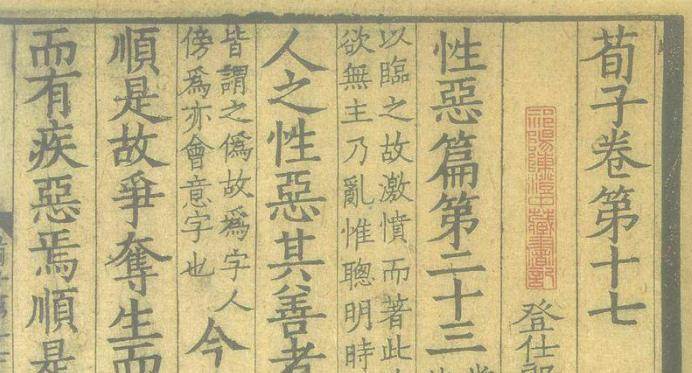 荀子卷第十七
祁陽陳澄中藏書記
登仕郎
性惡篇第二十三
以臨之故激憤而著此
欲無主乃亂惟聰明時
人之性惡其善者
皆謂之僞故爲字人
傍爲亦會意字也
今
順是故爭奪生而
而有疾惡焉順是